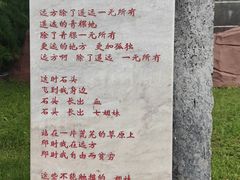 远方除了遥远一无所有
遥远的青稞地
除了青稞一无所有
更远的地方 更加孤独
远方啊 除了遥远 一无所有
这时石头
飞到我身边
石头 长出 血
石头 长出 七姐妹
站在一片荒芜的草原上
那时我在远方
那时我自由而贫穷
这些不能触摸的 姐妹